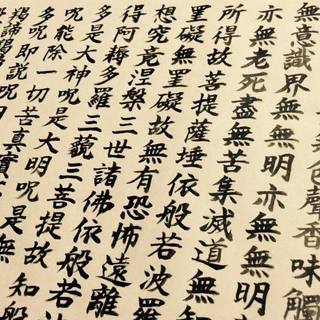 色聲香味觸
無意識界無無明亦無無明
亦無老死盡無苦集滅道無
所得故菩提薩埵依般若波羅
罣礙無罣礙故無有恐怖遠離
想究竟涅槃三世諸佛依般若
得阿耨多羅三藐三菩提故知般
多是大神呪是大明呪是無
呪能除一切苦真實
多呪即說呪
揭諦